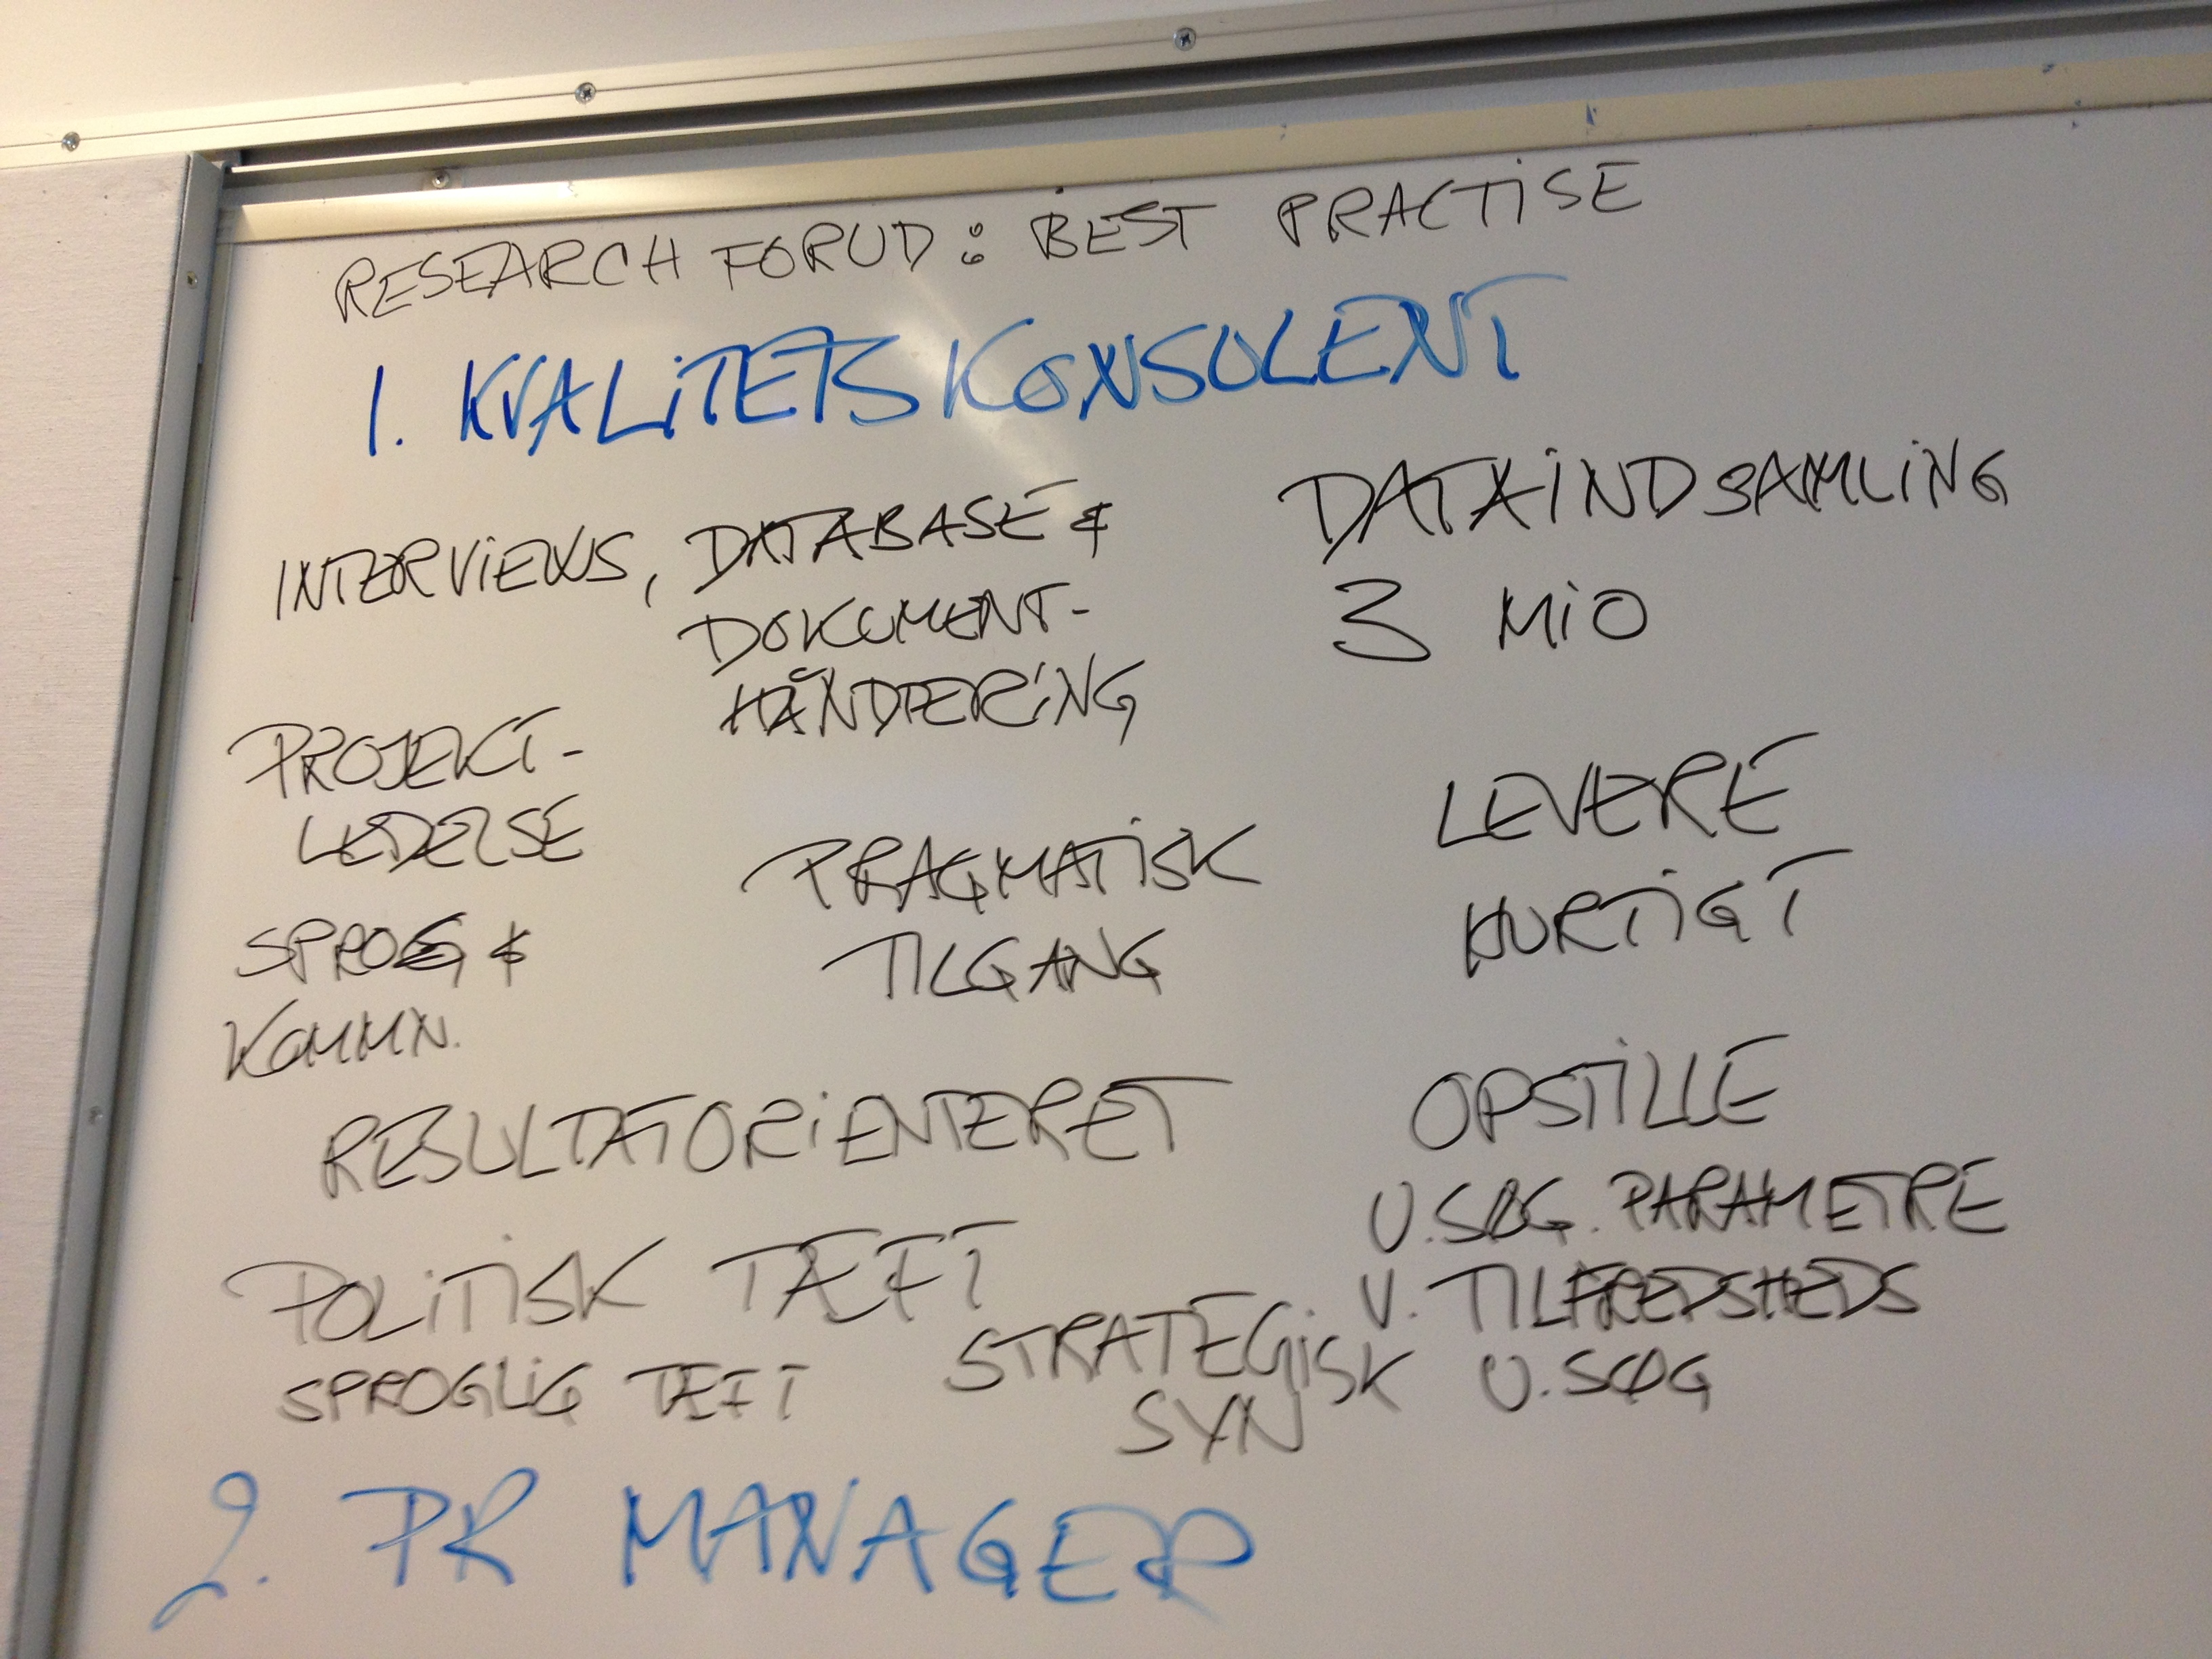 RESEARCH FORUD: BEST PRACTISE
1. KVALITETSKONSULENT
INTERVIEWS, DATABASE &
DOKUMENT-
HÅNDTERING
DATAINDSAMLING
3 MIO
PROJEKT-
LEDELSE
PRAGMATISK
TILGANG
LEVERE
HURTIGT
SPROG &
KOMMN.
RESULTATORIENTERET
OPSTILLE
U.SØG. PARAMETRE
V. TILFREDSHEDS
U.SØG
POLITISK TÆFT
SPROGLIG TÆFT
STRATEGISK
SYN
2. PR MANAGER